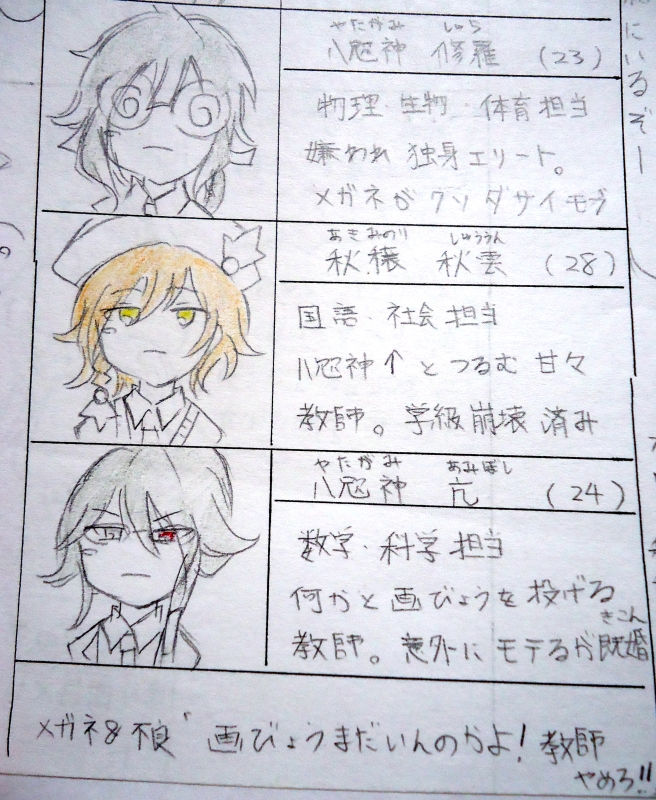 にいるぞー
やたがみ しゅら
八咫神 修羅 (23)
物理・生物・体育担当
嫌われ 独身エリート。
メガネがクソダサイモブ
あきみのり しゅううん
秋穣 秋雲 (28)
国語・社会担当
八咫神↑とつるむ甘々
教師。学級崩壊済み
やたがみ あみぼし
八咫神 亢 (24)
数学・科学担当
何かと画びょうを投げる
きこん
教師。意外にモテるが既婚
メガネ&不良〝画びょうまだいんのかよ!教師
やめろ!!